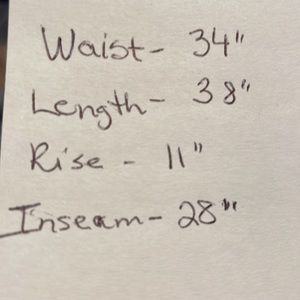 Waist- 34"
Length- 38"
Rise - 11"
Inseam- 28"